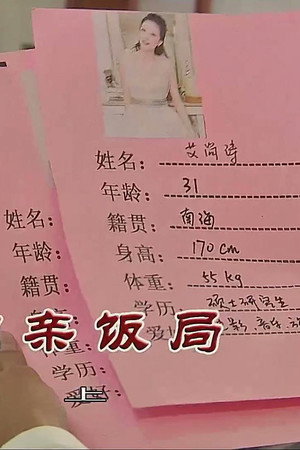 姓名： 艾
年龄： 31
籍贯： 南海
身高： 170 cm
体重： 55 kg
学历： 硕士研究生
音乐、
姓名：
年龄：
籍贯：
体重：
学历：
爱好：
亲饭局
上